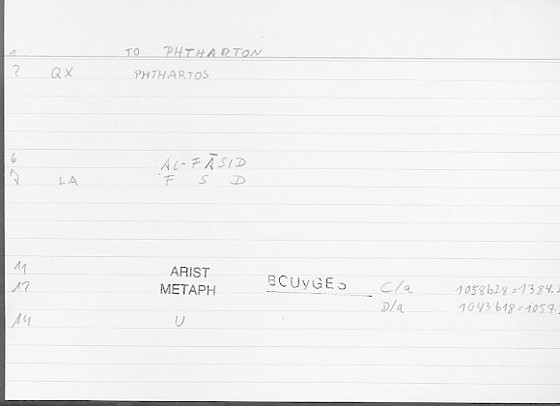 1 TO PHTHARTON
2 QX PHTHARTOS
6 AL-FĀSID
7 LA F S D
11 ARIST
12 METAPH BCUyGEs C/a 1058b28=1384.
D/a 1043b18=1057.
14 U